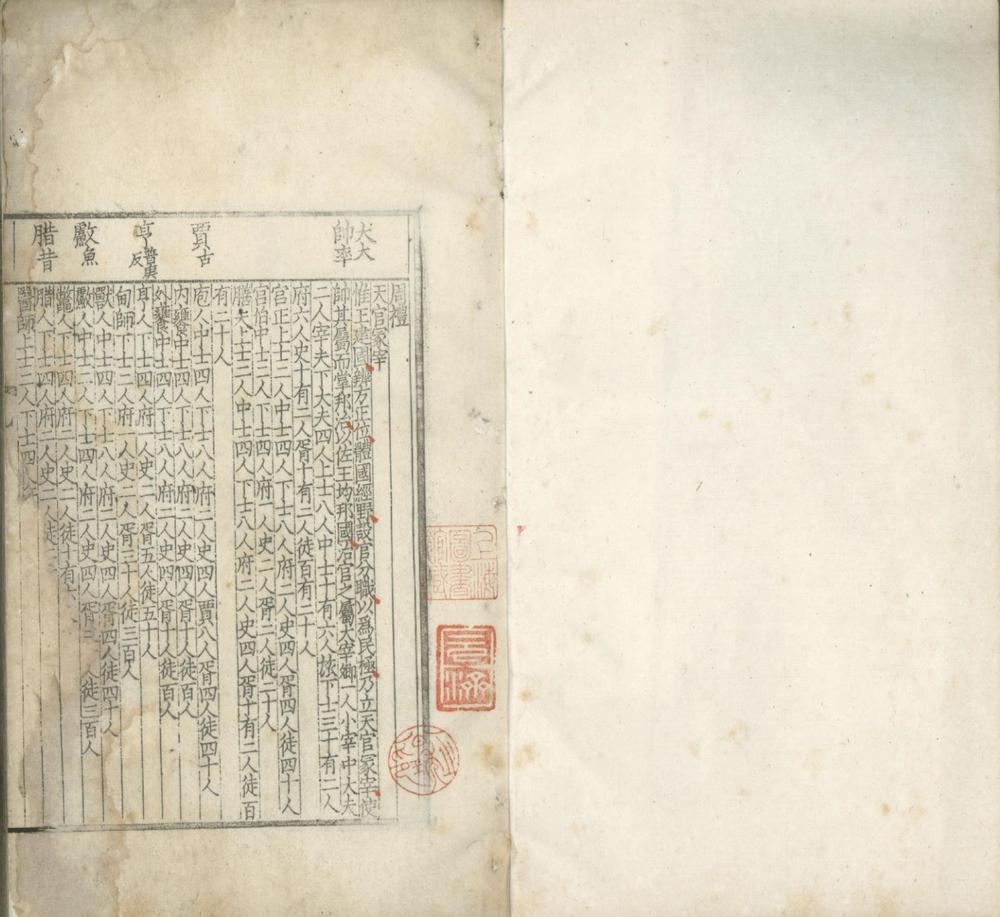 大大
帥率
賈古
亨普庚反
䱷魚
腊昔
周禮
天官冢宰
惟王建國辨方正位體國經野設官分職以為民極乃立天官冢宰使
帥其屬而掌邦治以佐王均邦國治官之屬大宰卿一人小宰中大夫
二人宰夫下大夫四人上士八人中士十有六人旅下士三十有二人
府六人史十有二人胥十有二人徒百有二十人
宮正上士二人中士四人下士八人府二人史四人胥四人徒四十人
宮伯中士二人下士四人府一人史二人胥二人徒二十人
膳夫上士二人中士四人下士八人府二人史四人胥十有二人徒百
有二十人
庖人中士四人下士八人府二人史四人賈八人胥四人徒四十人
內饔中士四人下士八人府二人史四人胥十人徒百人
外饔中士四人下士八人府二人史四人胥十人徒百人
亨人下士四人府一人史二人胥五人徒五十人
甸師下士二人府一人史二人胥三十人徒三百人
獸人中士四人下士八人府二人史四人胥四人徒四十人
䱷人中士二人下士四人府二人史四人胥三人徒三百人
鼈人下士四人府二人史二人徒十有
腊人下士四人府二人史二人徒二
醫師上士二人下士四人